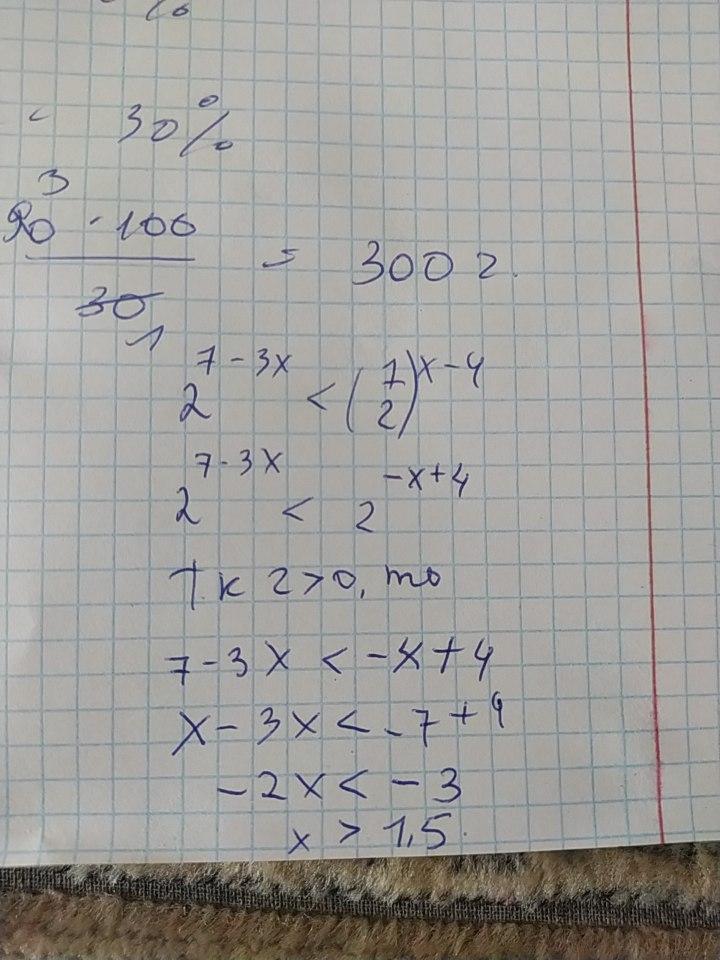 %
30%
3
90 · 100 / 30 = 300 г.
1
2^{7-3x} < (1/2)^{x-4}
2^{7-3x} < 2^{-x+4}
Т.к 2>0, то
7-3x < -x+4
x-3x < -7+4
-2x < -3
x > 1,5.